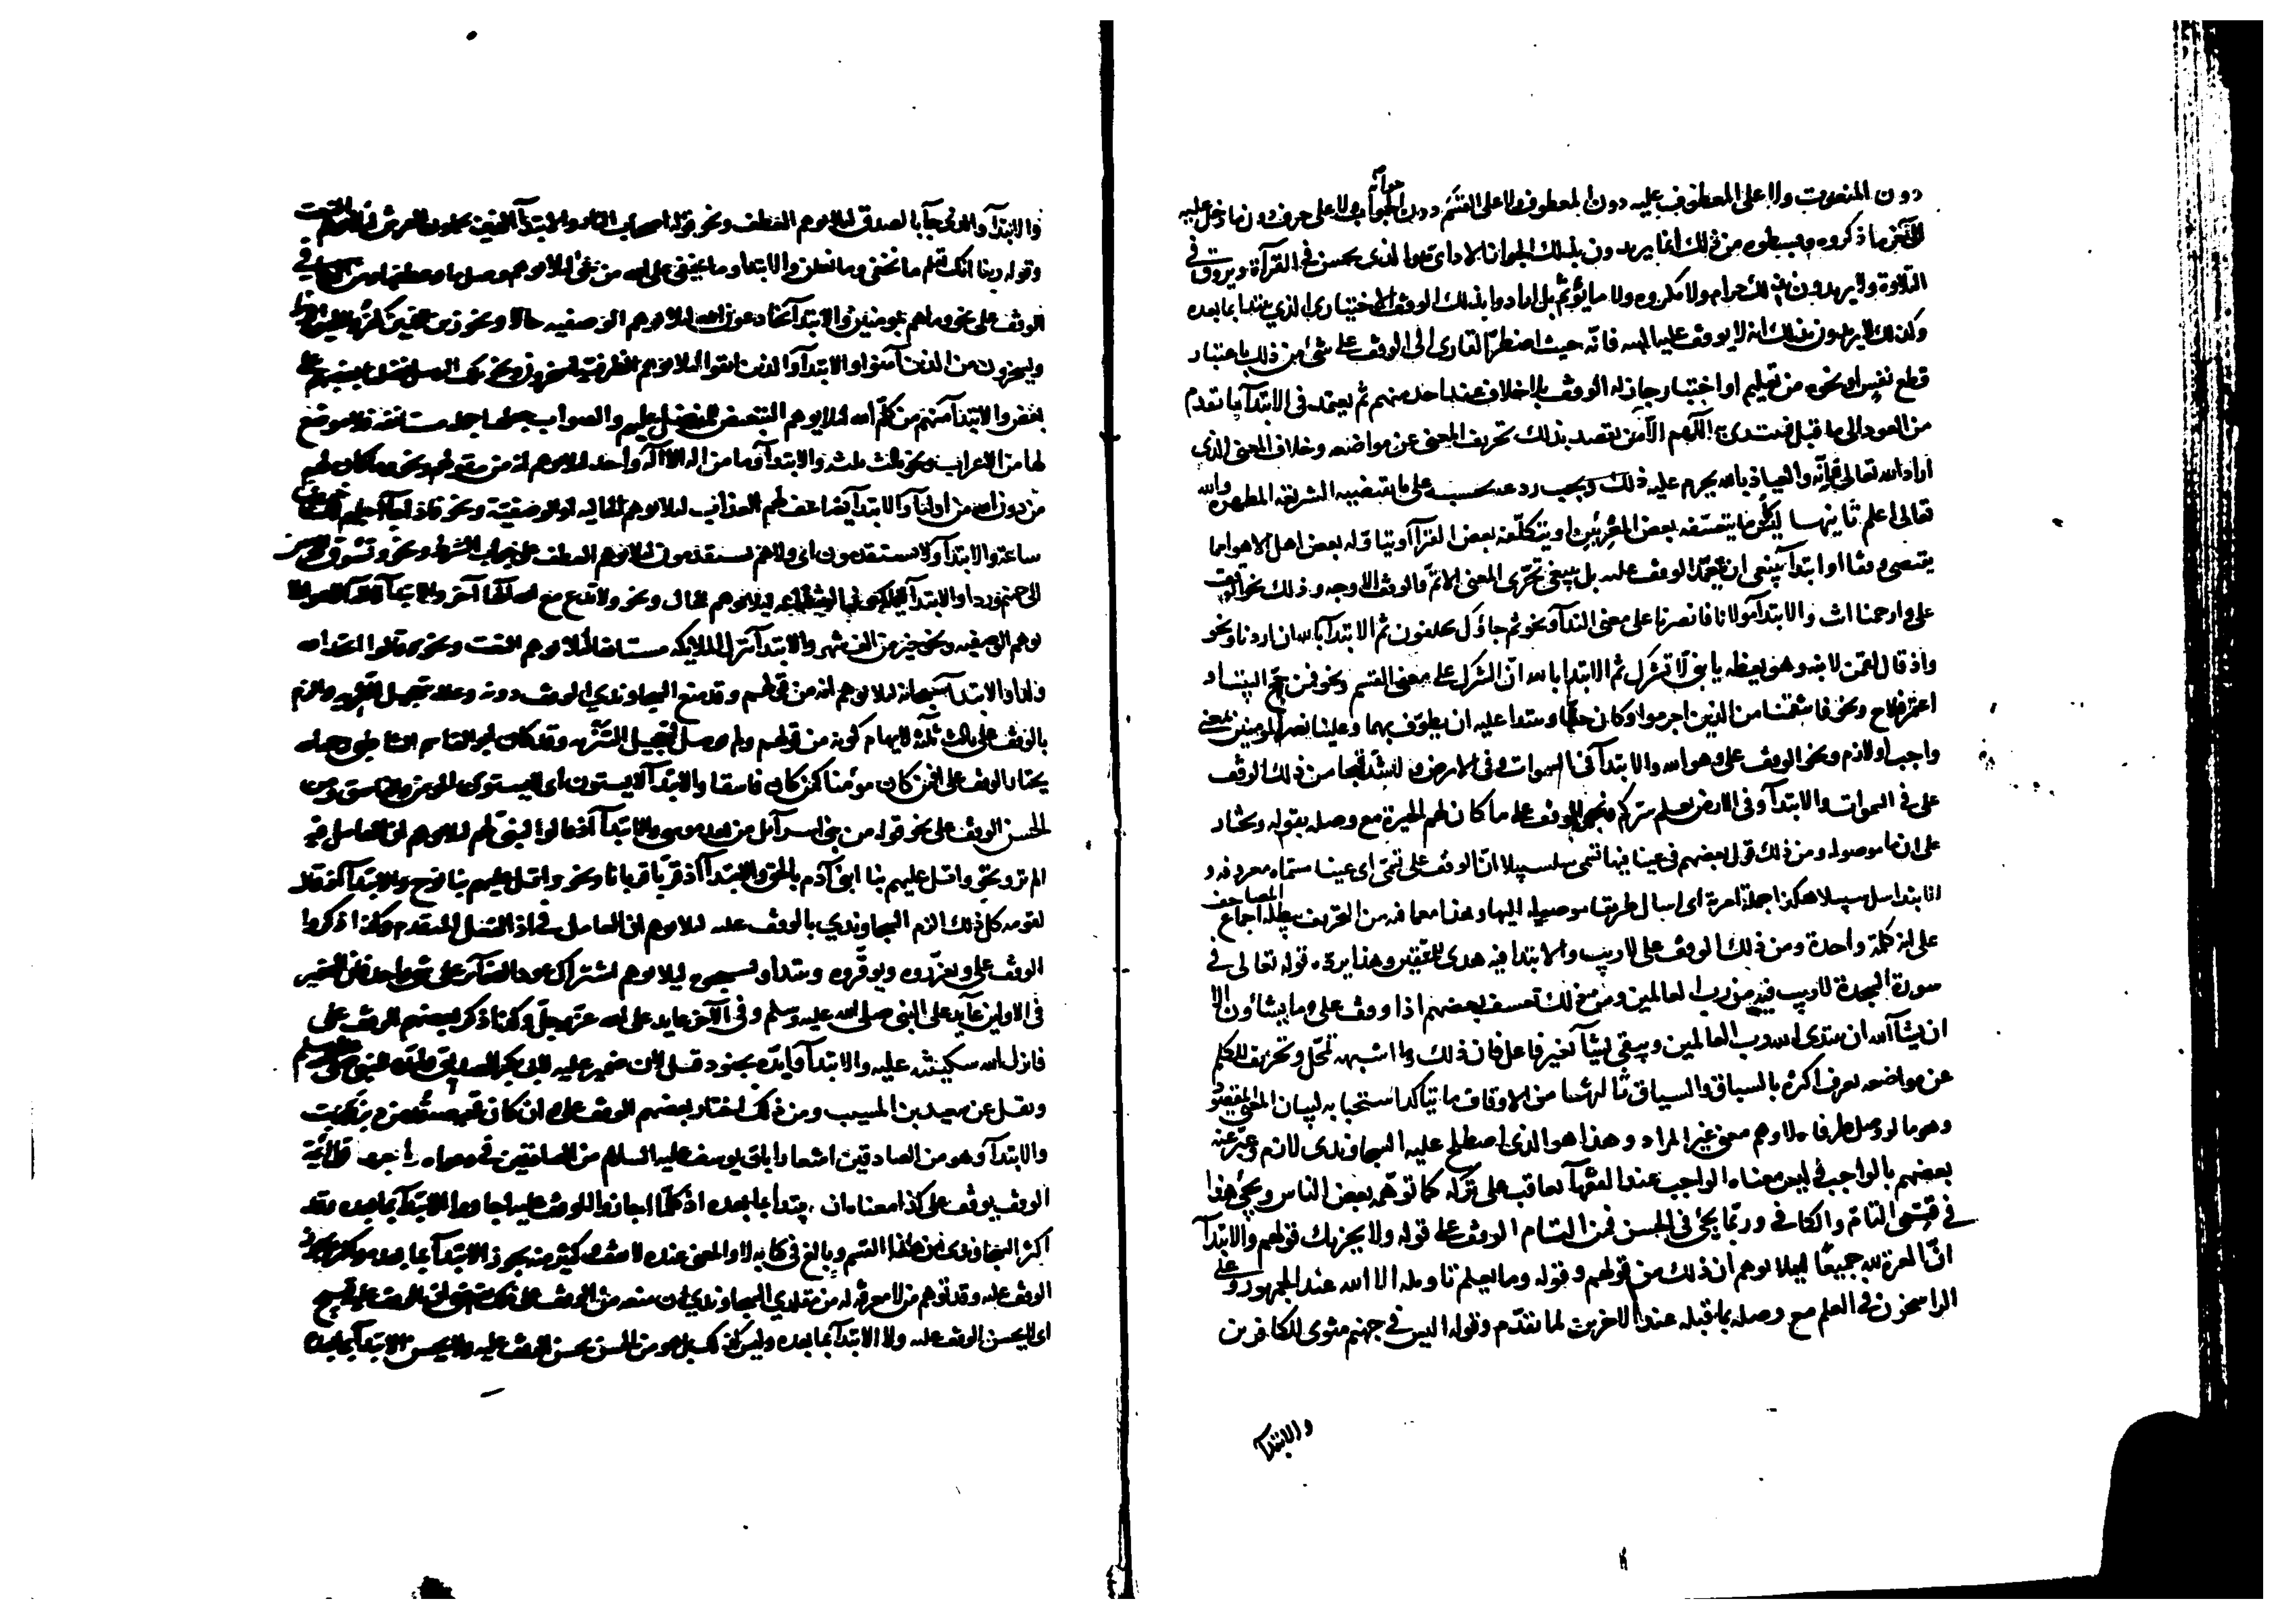 دون المنعوت ولا على المعطوف عليه دون المعطوف ولا على القسم دون جوابه ولا على حرف دون ما دخل عليه
الى آخر ما ذكروه وبسطوه من ذلك انما يريدون بذلك الجواز الادائي وهو الذي يحسن في القرآة ويروق في
التلاوة ولا يريدون بذلك انه حرام ولا مكروه ولا ما يؤثم بل ارادوا بذلك الوقف الاختياري الذي يبتدا بما بعده
وكذلك لا يريدون بذلك انه لا يوقف عليه البته فانه حيث اضطر القارى الى الوقف على شئ من ذلك باعتبار
قطع نفس او نحوه من تعليم او اختبار جاز له الوقف بلا خلاف عند احد منهم ثم يعتمد في الابتدآ ما تقدم
من العود الى ما قبل فيبتدئ به اللهم الا من يقصد بذلك تحريف المعنى عن مواضعه وخلاف المعنى الذى
اراد الله تعالى فانه والعياذ بالله يحرم عليه ذلك ويجب ردعه بحسبه على ما تقتضيه الشريعة المطهرة والله
تعالى اعلم ثانيها ليس كل ما يتعسفه بعض المعربين او يتكلفه بعض القرآ او يتاوله بعض اهل الاهوا مما
يقتضى وقفا او ابتدآ ينبغى ان يتعمد الوقف عليه بل ينبغى تحرى المعنى الاتم والوقف الاوجه وذلك نحو الوقف
على وارحمنا انت والابتدآ مولانا فانصرنا على معنى الندآ ونحو ثم جاؤك يحلفون ثم الابتدآ بالله ان اردنا ونحو
واذ قال لقمن لابنه وهو يعظه يا بنى لا تشرك ثم الابتدا بالله ان الشرك على معنى القسم ونحو فمن حج البيت او
اعتمر فلاح ونحو فانتقمنا من الذين اجرموا وكان حقا ويبتدا عليه ان يطوف بهما وعلينا نصر المومنين بمعنى
واجب او لازم ونحو الوقف على وهو الله والابتدآ في السموات وفي الارض واشد قبحا من ذلك الوقف
على في السموات والابتدآ وفي الارض يعلم سركم ونحو الوقف على ما كان لهم الخيرة مع وصله بقوله ويختار
على ان ما موصولة ومن ذلك قول بعضهم في عينا فيها تسمى سلسبيلا ان الوقف على تسمى اى عينا مسماه معروفه و
الابتدا سل سبيلا هكذا جملة امرية اى اسال طريقا موصلة اليها وهذا مع ما فيه من التحريف يبطله اجماع المصاحف
على انه كلمة واحدة ومن ذلك الوقف على لا ريب والابتدا فيه هدى للمتقين وهذا يرده قوله تعالى في
سورة السجدة لا ريب فيه من رب العالمين ومن ذلك تعسف بعضهم اذا وقف على وما يشاؤن الا
ان يشآ الله ان يبتدى الله رب العالمين ويبقى يشآ بغير فاعل فان ذلك وما اشبهه تمحل وتحريف للكلم
عن مواضعه يعرف اكثره بالسباق والسياق ثالثها من الاوقاف ما يتاكد استحبابه لبيان المعنى المقصود
وهو ما لو وصل طرفاه لاوهم معنى غير المراد وهذا هو الذى اصطلح عليه السجاوندى لازم وعبر عنه
بعضهم بالواجب وليس معناه الواجب عند الفقهآ يعاقب على تركه كما توهمه بعض الناس ويجئ هذا
في قسمى التام والكافي وربما يجئ في الحسن فمن التام الوقف على قوله ولا يحزنك قولهم والابتدآ
ان العزة لله جميعا ليلا يوهم ان ذلك من قولهم وقوله وما يعلم تاويله الا الله عند الجمهور وعلى
الراسخون في العلم مع وصله بما قبله عند الاخرين لما تقدم وقوله اليس في جهنم مثوى للكافرين
والابتدآ
والابتدآ والذى جآ بالصدق ليلا يوهم العطف ونحو قوله اصحاب النار والابتدآ الذين يحملون العرش ليلا يوهم النعت
وقوله ربنا انك تعلم ما نخفى وما نعلن والابتدا وما يخفى على الله من شئ ليلا يوهم وصل ما وعطفها ومن الكافي
الوقف على نحو وما هم بمومنين والابتدآ يخادعون الله ليلا يوهم الوصفيه حالا ونحو زين للذين كفروا الحيوة الدنيا
ويسخرون من الذين آمنوا والابتدآ والذين اتقوا ليلا يوهم الظرفية ليسخرون ونحو تلك الرسل فضلنا بعضهم على
بعض والابتدآ منهم من كلم الله ليلا يوهم التبعيض للمفضل عليهم والصواب جعلها جملة مستانفة فلا موضع
لها من الاعراب ونحو ثالث ثلثه والابتدآ وما من اله الا اله واحد ليلا يوهم انه من مقولهم ونحو وما كان لهم
من دون الله من اوليآ والابتدآ يضاعف لهم العذاب ليلا يوهم الحاليه او الوصفيه ونحو فاذا جآ اجلهم لا يستاخرون
ساعة والابتدآ ولا يستقدمون اى ولا هم يستقدمون ليلا يوهم العطف على جواب الشرط ونحو ونسوق المجرمين
الى جهنم وردا والابتدآ لا يملكون الشفاعه ليلا يوهم الحال ونحو ولا تدع مع الله الها آخر والابتدآ لا اله الا هو ليلا
يوهم الوصفيه ونحو خير من الف شهر والابتدآ تنزل الملايكه مستانفا ليلا يوهم النعت ونحو وقالوا اتخذ الله
ولدا والابتدآ سبحانه ليلا يوهم انه من قولهم وقد منع السجاوندي الوقف دونه وعلله بتعجيل التنزيه والزم
بالوقف على ثالث ثلثه لايهام كونه من قولهم ولم يوصل لتعجيل التنزيه وقد كان ابو القاسم الشاطبى رحمه الله
يختار الوقف على افمن كان مؤمنا كمن كان فاسقا والابتدآ لا يستون اى لا يستوى المومن والفاسق ومن
الحسن الوقف على نحو قوله من بنى اسرآئل من بعد موسى والابتدآ اذ قالوا لنبى لهم ليلا يوهم ان العامل فيه
الم تر ونحو واتل عليهم نبا ابنى آدم بالحق والابتدآ اذ قربا قربانا ونحو واتل عليهم نبا نوح والابتدآ اذ قال
لقومه كل ذلك الزم السجاوندي بالوقف عليه ليلا يوهم ان العامل في اذ الفعل المتقدم وكذا ذكروا
الوقف على وتعزروه وتوقروه ويبتدا وتسبحوه ليلا يوهم اشتراك عود الضمآئر على شئ واحد فان الضمير
في الاولين عآيد على النبى صلى الله عليه وسلم وفي الآخر عايد على الله عز وجل وكذا ذكر بعضهم الوقف على
فانزل الله سكينته عليه والابتدآ وايده بجنود قيل لان ضمير عليه لابى بكر الصديق وايده للنبى صلى الله عليه وسلم
ونقل عن سعيد بن المسيب ومن ذلك اختار بعضهم الوقف على وان كان قميصه قد من دبر فكذبت
والابتدآ وهو من الصادقين اشعارا بان يوسف عليه السلام من الصادقين في دعواه رابعها قول الائمة
الوقف يوقف على كذا معناه ان يبتدا بما بعده اذ كلما اجازوا الوقف عليه اجازوا الابتدآ بما بعده وقد
اكثر السجاوندى من هذا القسم وبالغ في كتابه لا والمعنى عنده لا تقف وكثير منه يجوز الابتدآ بما بعده واكثره يجوز
الوقف عليه وقد توهم من لا معرفة له من مقلدي السجاوندي ان منعه من الوقف على ذلك يقتضى ان الوقف عليه قبيح
اى لا يحسن الوقف عليه ولا الابتدآ بما بعده وليس كذلك بل هو من الحسن يحسن الوقف عليه ولا يحسن الابتدآ بما بعده